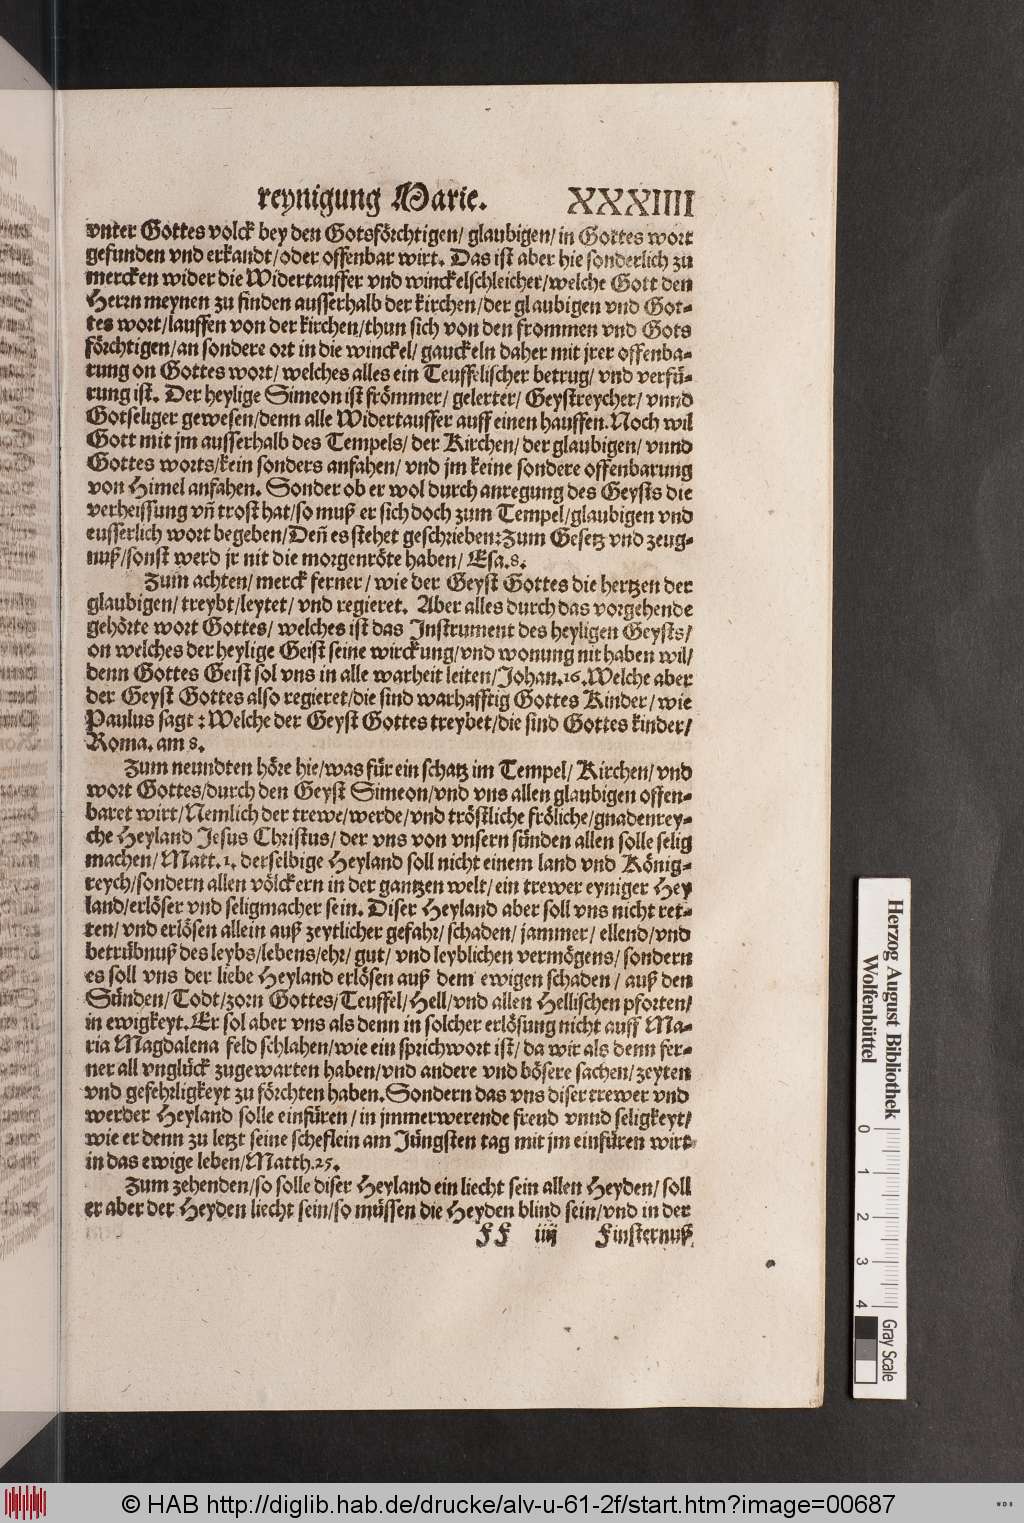 reynigung Marie. XXXIIII
vnter Gottes volck bey den Gotsförchtigen/ glaubigen/ in Gottes wort
gefunden vnd erkandt/oder offenbar wirt. Das ist aber hie sonderlich zu
mercken wider die Widertauffer vnd winckelschleicher/welche Gott den
Herrn meynen zu finden ausserhalb der kirchen/der glaubigen vnd Got-
tes wort/lauffen von der kirchen/thun sich von den frommen vnd Gots
förchtigen/an sondere ort in die winckel/ gauckeln daher mit jrer offenba-
rung on Gottes wort/ welches alles ein Teuffelischer betrug/ vnd verfü-
rung ist. Der heylige Simeon ist frömmer/ gelerter/ Geystreycher/ vnnd
Gotseliger gewesen/denn alle Widertauffer auff einen hauffen. Noch wil
Gott mit jm ausserhalb des Tempels/ der Kirchen/ der glaubigen/ vnnd
Gottes worts/kein sonders anfahen/ vnd jm keine sondere offenbarung
von Himel anfahen. Sonder ob er wol durch anregung des Geysts die
verheissung vñ trost hat/so muß er sich doch zum Tempel/glaubigen vnd
eusserlich wort begeben/Deñ es stehet geschrieben:Zum Gesetz vnd zeug-
nuß/sonst werd jr nit die morgenröte haben/ Esa.8.
Zum achten/ merck ferner/ wie der Geyst Gottes die hertzen der
glaubigen/ treybt/leytet/ vnd regieret. Aber alles durch das vorgehende
gehörte wort Gottes/ welches ist das Instrument des heyligen Geysts/
on welches der heylige Geist seine wirckung/vnd wonung nit haben wil/
denn Gottes Geist sol vns in alle warheit leiten/Johan.16. Welche aber
der Geyst Gottes also regieret/die sind warhafftig Gottes Kinder/ wie
Paulus sagt: Welche der Geyst Gottes treybet/die sind Gottes kinder/
Roma. am 8.
Zum neundten höre hie/was für ein schatz im Tempel/ Kirchen/ vnd
wort Gottes/durch den Geyst Simeon/vnd vns allen glaubigen offen-
baret wirt/Nemlich der trewe/werde/vnd tröstliche fröliche/gnadenrey-
che Heyland Jesus Christus/ der vns von vnsern sünden allen solle selig
machen/ Matt.1. derselbige Heyland soll nicht einem land vnd König-
reych/sondern allen völckern in der gantzen welt/ ein trewer eyniger Hey
land/erlöser vnd seligmacher sein. Diser Heyland aber soll vns nicht ret-
ten/ vnd erlösen allein auß zeytlicher gefahr/ schaden/ jammer/ ellend/vnd
betrübnuß des leybs/lebens/ehr/ gut/ vnd leyblichen vermögens/ sondern
es soll vns der liebe Heyland erlösen auß dem ewigen schaden/ auß den
Sünden/Todt/zorn Gottes/Teuffel/Hell/vnd allen Hellischen pforten/
in ewigkeyt. Er sol aber vns als denn in solcher erlösung nicht auff Ma-
ria Magdalena feld schlahen/wie ein sprichwort ist/ da wir als denn fer-
ner all vnglück zugewarten haben/vnd andere vnd bösere sachen/zeyten
vnd gefehrligkeyt zu förchten haben. Sondern das vns diser trewer vnd
werder Heyland solle einfüren/ in jmmerwerende freud vnnd seligkeyt/
wie er denn zu letzt seine scheflein am Jüngsten tag mit jm einfüren wirt
in das ewige leben/Matth.25.
Zum zehenden/so solle diser Heyland ein liecht sein allen Heyden/ soll
er aber der Heyden liecht sein/so müssen die Heyden blind sein/vnd in der
FF iiij Finsternuß
Herzog August Bibliothek
Wolfenbüttel
0 1 2 3 4
Gray Scale
© HAB http://diglib.hab.de/drucke/alv-u-61-2f/start.htm?image=00687